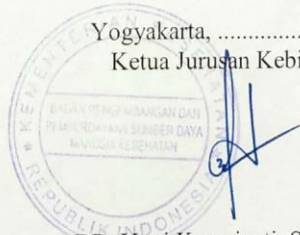 Yogyakarta, ................
Ketua Jurusan Kebi
KEMENTERIAN KESEHATAN
BADAN PENGEMBANGAN DAN
PEMBERDAYAAN SUMBER DAYA
MANUSIA KESEHATAN
REPUBLIK INDONESIA